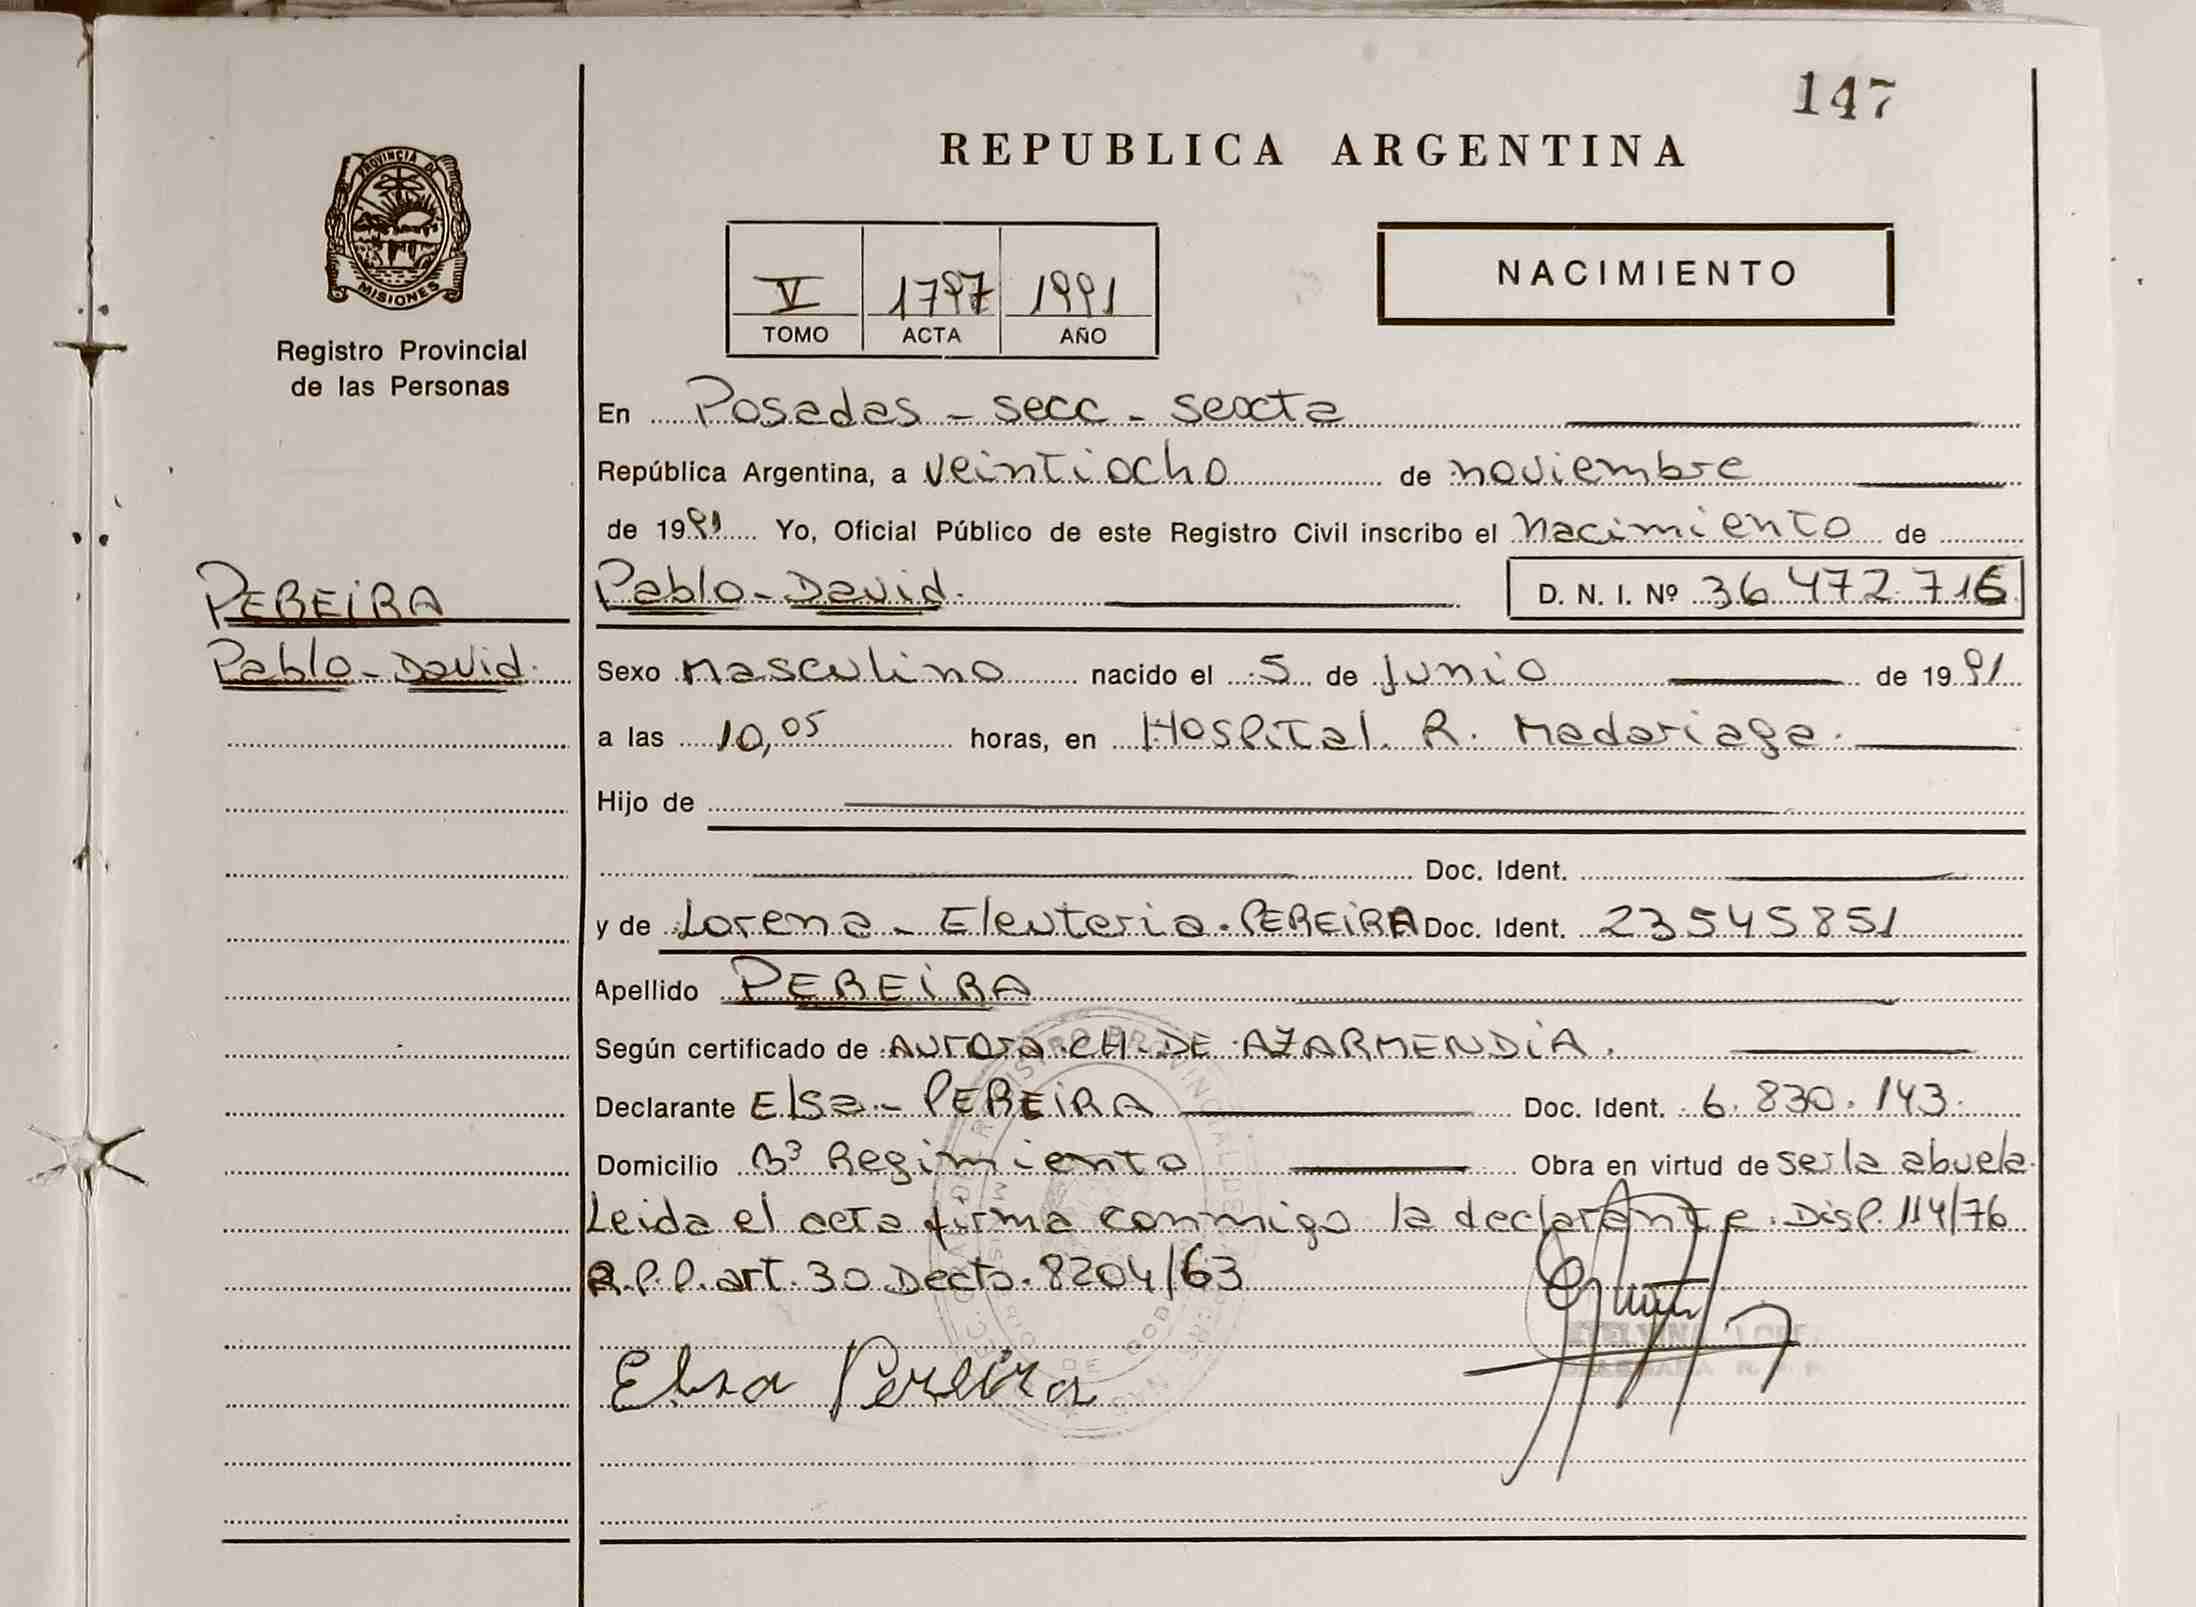 147
REPUBLICA ARGENTINA
PROVINCIA DE
MISIONES
Registro Provincial
de las Personas
V 1797 1991
TOMO ACTA AÑO
NACIMIENTO
En Posadas - secc - sexta
República Argentina, a veintiocho de noviembre
de 1991 Yo, Oficial Público de este Registro Civil inscribo el nacimiento de
PEREIRA
Pablo - David.
Pablo - David. D. N. I. Nº 36 472 716
Sexo masculino nacido el 5 de junio de 1991
a las 10,05 horas, en Hospital. R. Madariaga.
Hijo de
Doc. Ident.
y de Lorena - Eleuteria. PEREIRA Doc. Ident. 23545851
Apellido PEREIRA
Según certificado de Aurora CH. DE AZARMENDIA.
Declarante Elsa - PEREIRA Doc. Ident. 6.830.143.
Domicilio Bº Regimiento Obra en virtud de ser la abuela.
Leida el acta firma conmigo la declarante. Disp. 114/76
R.P.P. art. 30 Decto. 8204/63
Elsa Pereira